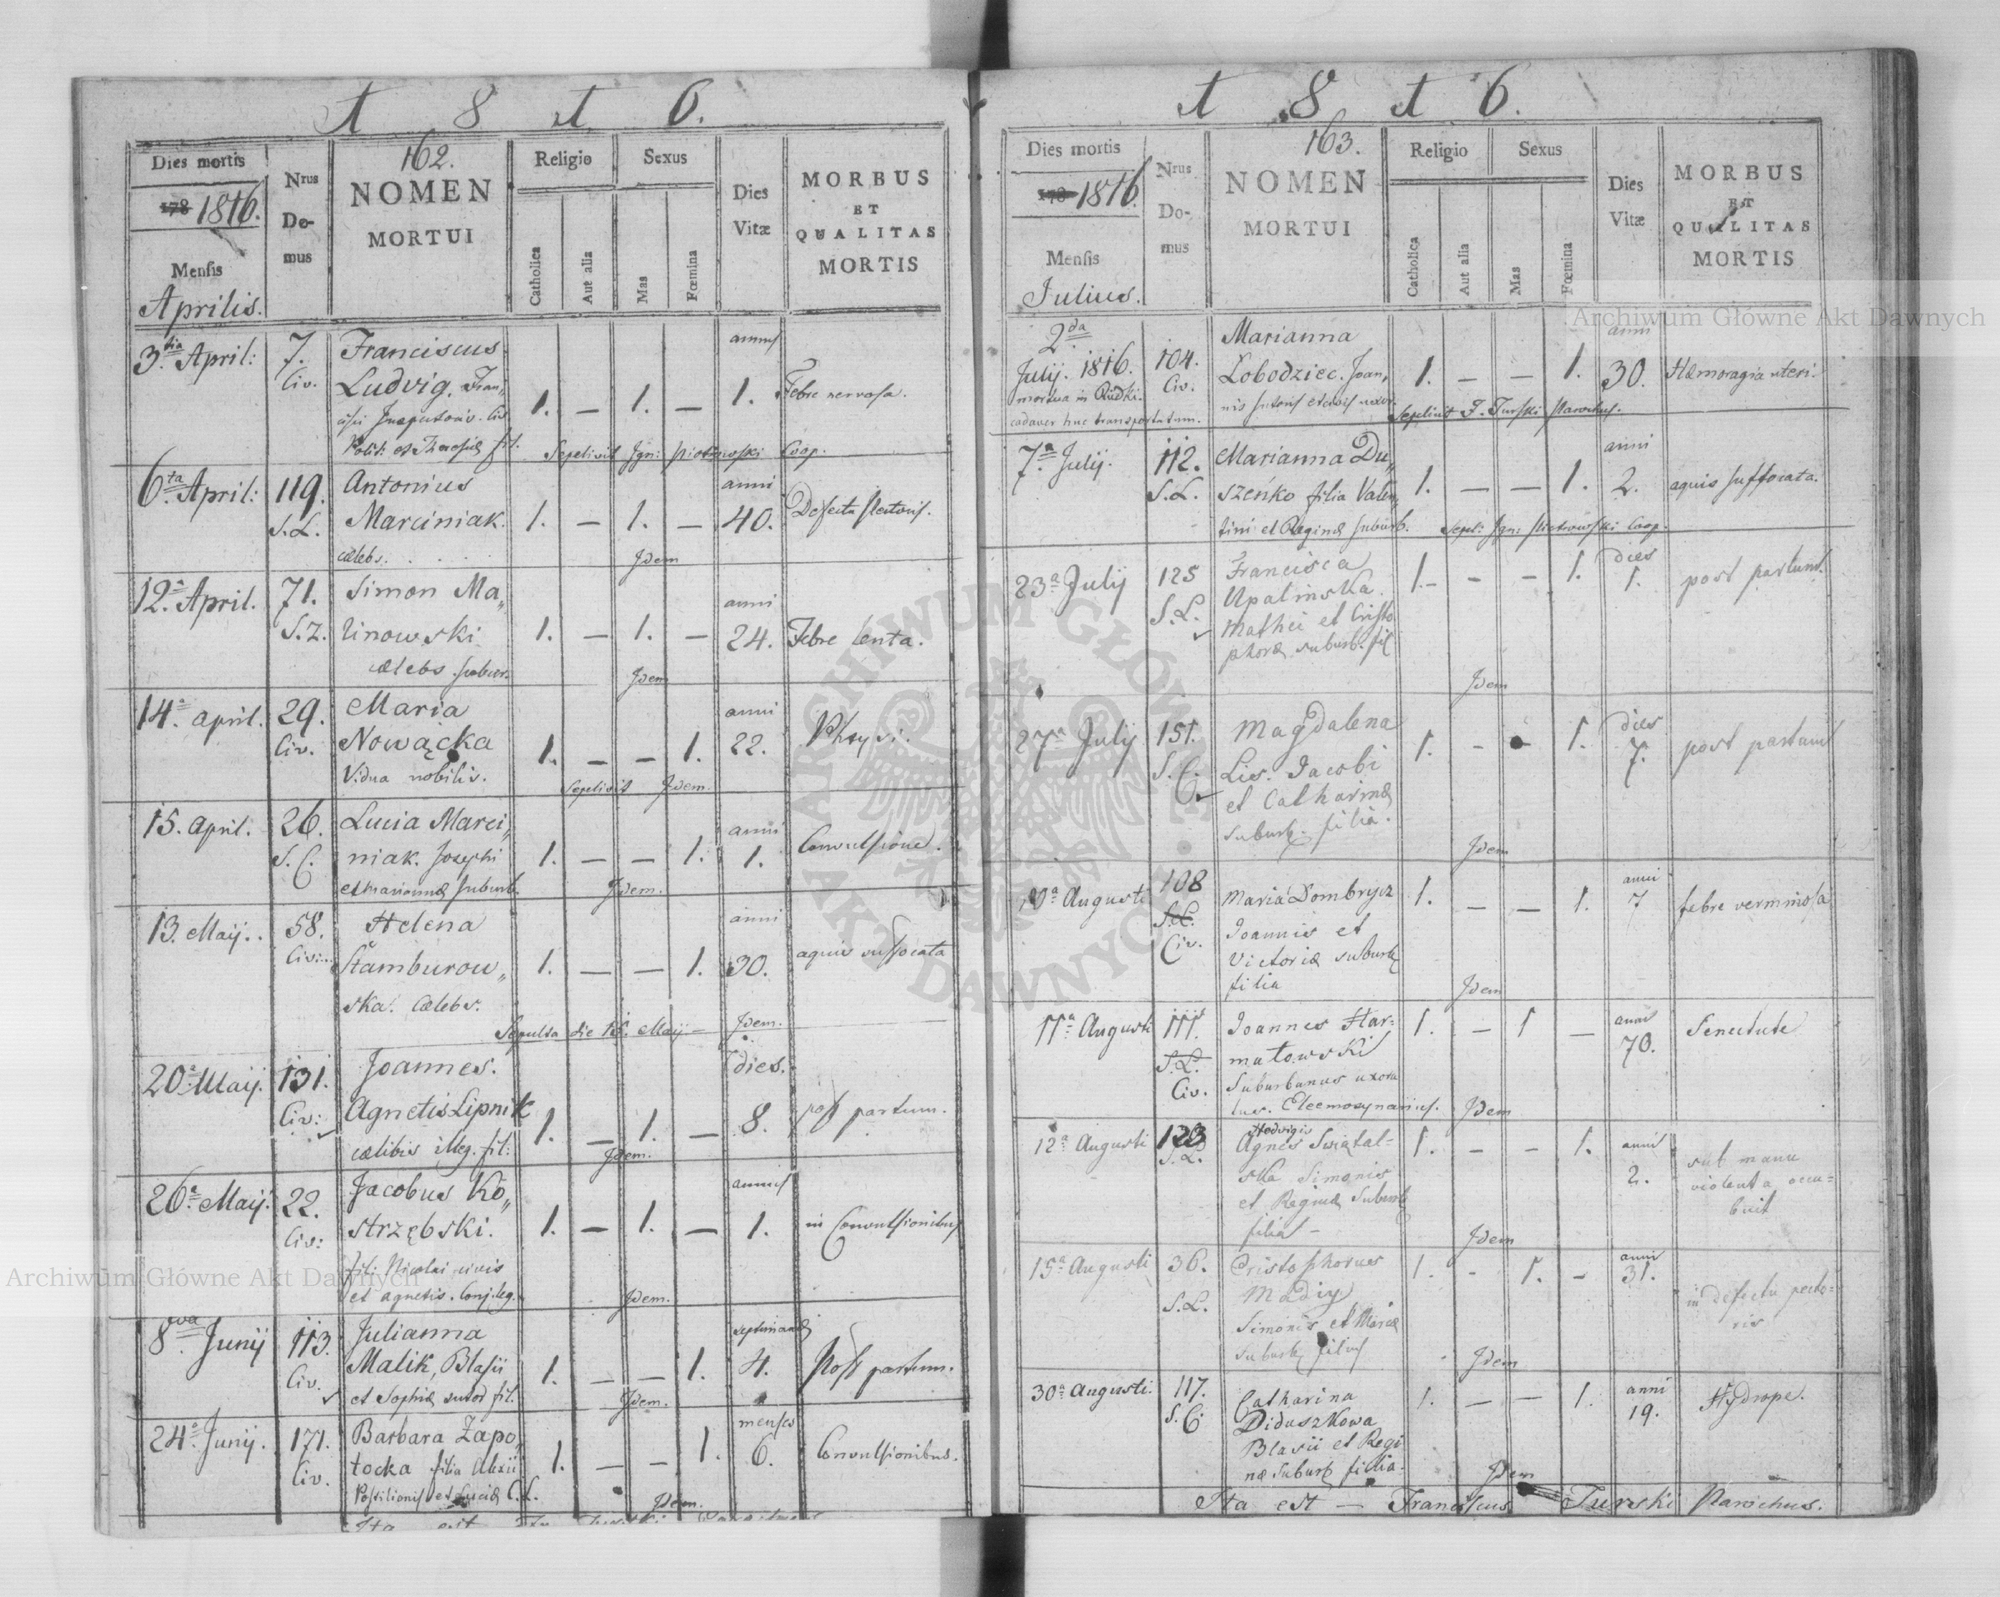 1 8 1 6.
162.
Dies mortis
178 1816.
Mensis
Aprilis.
Nrus
Do-
mus
NOMEN
MORTUI
Religio
Catholica
Aut alia
Sexus
Mas
Fœmina
Dies
Vitæ
MORBUS
ET
QUALITAS
MORTIS
3tia April: 7. Civ. Franciscus
Ludvig, Fran„
1. — 1. — annus 1. Febre nervosa.
Polit: et Theresiæ fil. Sepelivit Ign: Piotrowski Coop.
6.ta April: 119. S.L. Antonius
Marciniak.
cælebs.
1. — 1. — anni 40. Defectu Pectoris.
Idem
12.a April. 71. S.L. Simon Ma„
linowski
cælebs suburb.
1. — 1. — anni 24. Febre lenta.
Idem
14.a April. 29. Civ. Maria
Nowącka
Vidua nobilis.
1. — — 1. anni 22.
Sepelivit Idem.
15. April. 26. S.C. Lucia Marci„
niak. Josephi
et Mariannæ suburb.
1. — — 1. anni 1. Convulsione.
Idem.
13. Maij. 58. Civ: Helena
Stamburow„
ska. Cælebs.
1. — — 1. anni 30. aquis suffocata
Sepulta die 15. Maij — Idem.
20.a Maij. 131. Civ: Joannes.
Agnetis Lipnik
cælibis illeg. fil:
1. — 1. — dies. 8. post partum.
Idem.
26.a Maij. 22. Civ: Jacobus Ko„
strzębski.
fil: Nicolai civis
et Agnetis. Conj. leg.
1. — 1. — annus 1. in Convulsionibus
Idem.
8.va Junij 113. Civ. Julianna
Malik, Blasii
et Sophiæ sutor fil.
1. — — 1. septimanæ 4. Post partum.
Idem.
24.a Junij. 171. Civ. Barbara Zapo„
tocka filia Alexii
Postilionis et Luciæ C.L.
1. — — 1. menses 6. Convulsionibus.
Idem.
Ita est
1 8 1 6.
163.
Dies mortis
178 1816.
Mensis
Julius.
Nrus
Do-
mus
NOMEN
MORTUI
Religio
Catholica
Aut alia
Sexus
Mas
Fœmina
Dies
Vitæ
MORBUS
ET
QUALITAS
MORTIS
2da
Julij. 1816.
mortua in Rudki.
cadaver huc transportatum.
104. Civ. Marianna
Łobodziec. Joan„
nis sutoris et civis uxor.
1. — — 1. anni 30. Hæmoragia uteri.
Sepelivit F. Turski Parochus.
7.a Julij. 112. S.L. Marianna Du„
szeńko filia Valen„
tini et Reginæ suburb.
1. — — 1. anni 2. aquis suffocata.
Sepel: Ign: Piotrowski Coop.
23a Julij 125 S.L. Francisca
Upalinska.
Mathei et Cristo
phoræ suburb. fil
1. - - 1. dies 1. post partum.
Idem
27a July 151. S.C. Magdalena
Lis. Jacobi
et Catharinæ
suburb. filia.
1. - - 1. dies 7. post partum
Idem
10a Augusti 108 S.L. Civ. Maria Dombrycz
Joannis et
Victoriæ suburb
filia
1. — — 1. anni 7 febre verminosa
Idem
11a Augusti 111. S.L. Civ. Joannes Har-
matowski
Suburbanus uxora
tus. Eleemosynarius.
1. — 1 — anni 70. Senectute
Idem
12a Augusti 123 S.L. Hedvigis
Agnes Swiątal-
ska Simonis
et Reginæ suburb
filia —
1. - - 1. anni 2. sub manu
violenta occu-
buit
Idem
15a Augusti 36. S.L. Cristophorus
Madiy
Simonis et Mariæ
suburb filius
1. - 1. - anni 31. in defectu pecto-
ris
Idem
30a Augusti. 117. S.C. Catharina
Diduszkowa
Blasii et Regi
næ suburb filia.
1. — — 1. anni 19. Hydrope.
Idem
Ita est — Franciscus Turski Parochus.
Archiwum Główne Akt Dawnych
Archiwum Główne Akt Dawnych
ARCHIWUM GŁÓWNE
AKT DAWNYCH